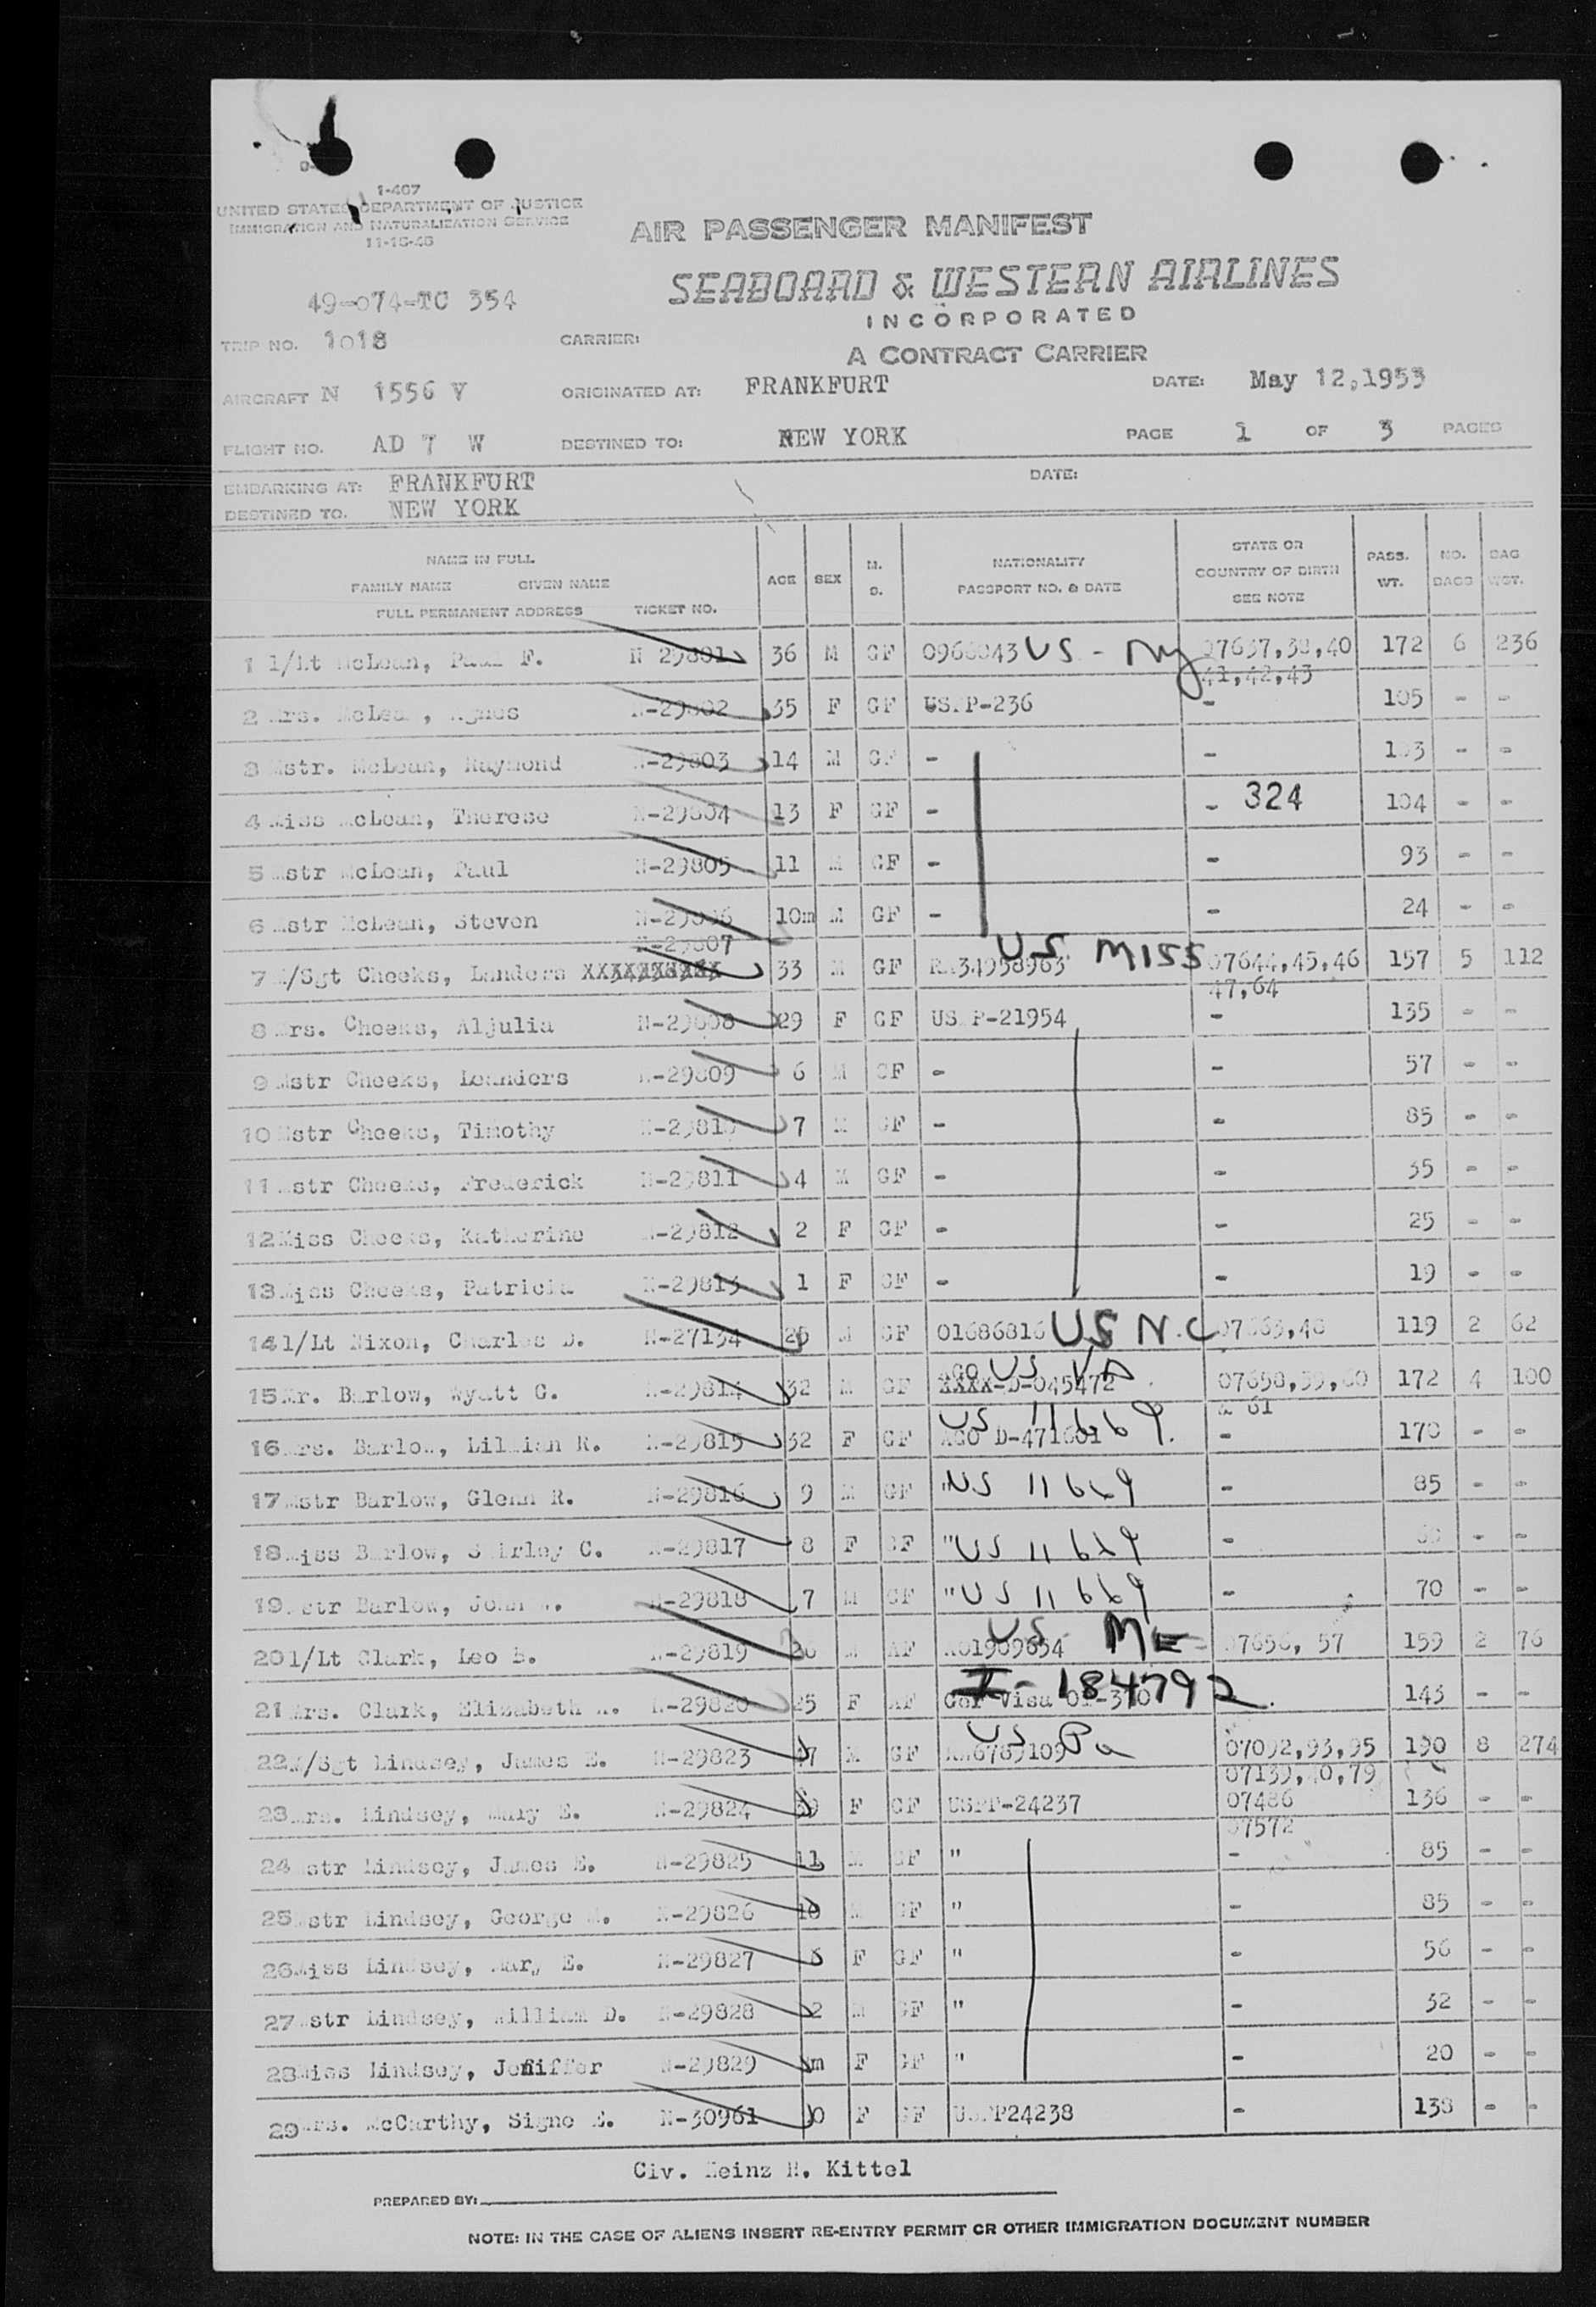 1-407
UNITED STATES DEPARTMENT OF JUSTICE
IMMIGRATION AND NATURALIZATION SERVICE
11-15-46
AIR PASSENGER MANIFEST
SEABOARD & WESTERN AIRLINES
INCORPORATED
A CONTRACT CARRIER
49-074-TC 354
TRIP NO. 1018 CARRIER:
AIRCRAFT N 1556 V ORIGINATED AT: FRANKFURT DATE: May 12,1953
FLIGHT NO. AD 7 W DESTINED TO: NEW YORK PAGE 1 OF 3 PAGES
EMBARKING AT: FRANKFURT DATE:
DESTINED TO. NEW YORK
NAME IN FULL
FAMILY NAME GIVEN NAME
FULL PERMANENT ADDRESS TICKET NO. AGE SEX M. S. NATIONALITY PASSPORT NO. & DATE STATE OR COUNTRY OF BIRTH SEE NOTE PASS. WT. NO. BAGS BAG WGT.
1 1/Lt McLean, Paul F. N 29801 36 M GF US - Ny 07637,38,40 172 6 236
41,42,43
2 Mrs. McLean, Agnes N-29802 35 F GF USPP-236 - 105 - -
3 Mstr. McLean, Raymond N-29803 14 M GF - - - -
4 Miss McLean, Therese N-29804 13 F GF - - 324 104 - -
5 Mstr McLean, Paul N-29805 11 M GF - - 93 - -
6 Mstr McLean, Steven N-29806 10m M GF - - 24 - -
N-29807 US MISS
7 M/Sgt Cheeks, Landers 33 M GF RA34958963 07644,45,46 157 5 112
47,64
8 Mrs. Cheeks, Aljulia N-29808 29 F GF USPP-21954 - 135 - -
9 Mstr Cheeks, Leanders N-29809 6 M GF - - 57 - -
10 Mstr Cheeks, Timothy N-29810 7 M GF - - 85 - -
11 Mstr Cheeks, Frederick N-29811 4 M GF - - 35 - -
12 Miss Cheeks, Katherine N-29812 2 F GF - - 25 - -
13 Miss Cheeks, Patricia N-29813 1 F GF - - 19 - -
14 1/Lt Nixon, Charles D. N-27134 M GF 01686816 US N.C 119 2 62
AGO US VA
15 Mr. Barlow, Wyatt G. N-29814 32 M GF XXXX-D-045472 07658,59,60 172 4 100
& 61
US 11669
16 Mrs. Barlow, Lillian R. N-29815 32 F GF AGO D-471601 - 170 - -
17 Mstr Barlow, Glenn R. N-29816 9 M GF "US 11669 - 85 - -
18 Miss Barlow, Shirley C. N-29817 8 F GF "US 11669 - - -
19 Mstr Barlow, John N-29818 7 M GF "US 11669 - 70 - -
US ME
20 1/Lt Clark, Leo N-29819 M AF AO1909654 07656, 57 159 2 76
I-184792
21 Mrs. Clark, Elizabeth N-29820 25 F AF Visa 143 - -
US Pa
22 M/Sgt Lindsey, James E. N-29823 47 M GF RA6789109 07092,93,95 190 8 274
07139,40,79
23 Mrs. Lindsey, Mary E. N-29824 39 F GF USPP-24237 07486 136 - -
07572
24 Mstr Lindsey, James E. N-29825 11 M GF " - 85 - -
25 Mstr Lindsey, George N-29826 10 M GF " - 85 - -
26 Miss Lindsey, Mary E. N-29827 F GF " - 56 - -
27 Mstr Lindsey, William D. N-29828 2 M GF " - 32 - -
28 Miss Lindsey, Jeniffer N-29829 F GF " - 20 - -
29 Mrs. McCarthy, Signe E. N-30961 F GF USPP24238 - 138 - -
Civ. Heinz H. Kittel
PREPARED BY:
NOTE: IN THE CASE OF ALIENS INSERT RE-ENTRY PERMIT OR OTHER IMMIGRATION DOCUMENT NUMBER